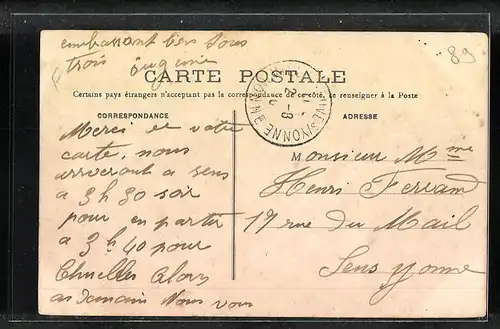 embrassant bien tous
trois Eugénie
89
CARTE POSTALE
Certains pays étrangers n'acceptent pas la correspondance de ce côté, se renseigner à la Poste
CORRESPONDANCE
ADRESSE
Merci de votre
carte, nous
arriveront a sens
a 3 h 30 soir
pour en partir
a 3 h 40 pour
Chuelles alors
a demain Nous vous
Monsieur Mme
Henri Ferrand
17 rue du Mail
Sens yonne